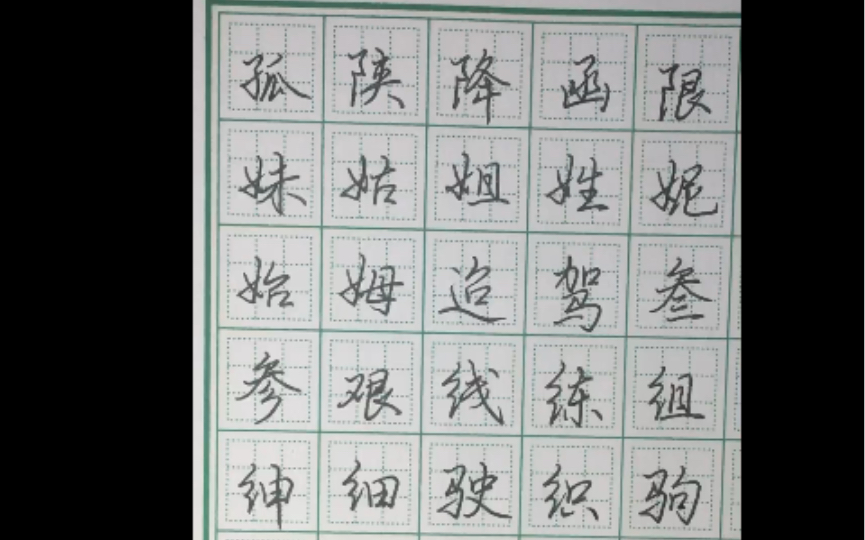 孤陕降函限
妹姑姐姓妮
始姆迢驾叁
参艰线练组
绅细驶织驹